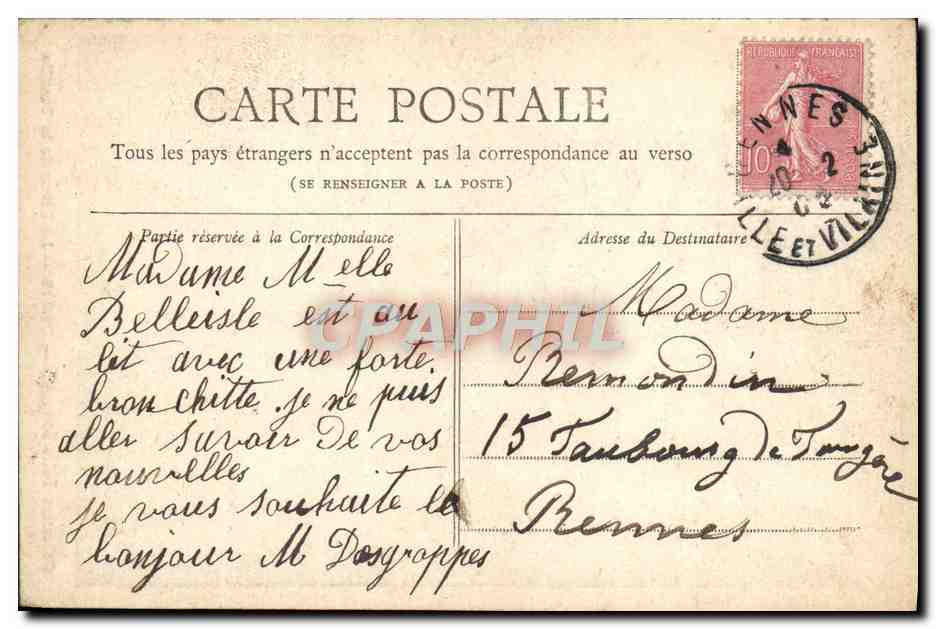 RÉPUBLIQUE FRANÇAISE
10
RENNES
4
20 2
ILLE ET VILAINE
CARTE POSTALE
Tous les pays étrangers n'acceptent pas la correspondance au verso
(SE RENSEIGNER A LA POSTE)
Partie réservée à la Correspondance
Madame Melle
Belleisle est au
lit avec une forte
bronchitte. je ne puis
aller savoir De vos
nouvelles
je vous souhaite le
bonjour M Dosgroppes
Adresse du Destinataire
Madame
Remondin
15 Faubourg de Fougère
Rennes
CPAPHIL